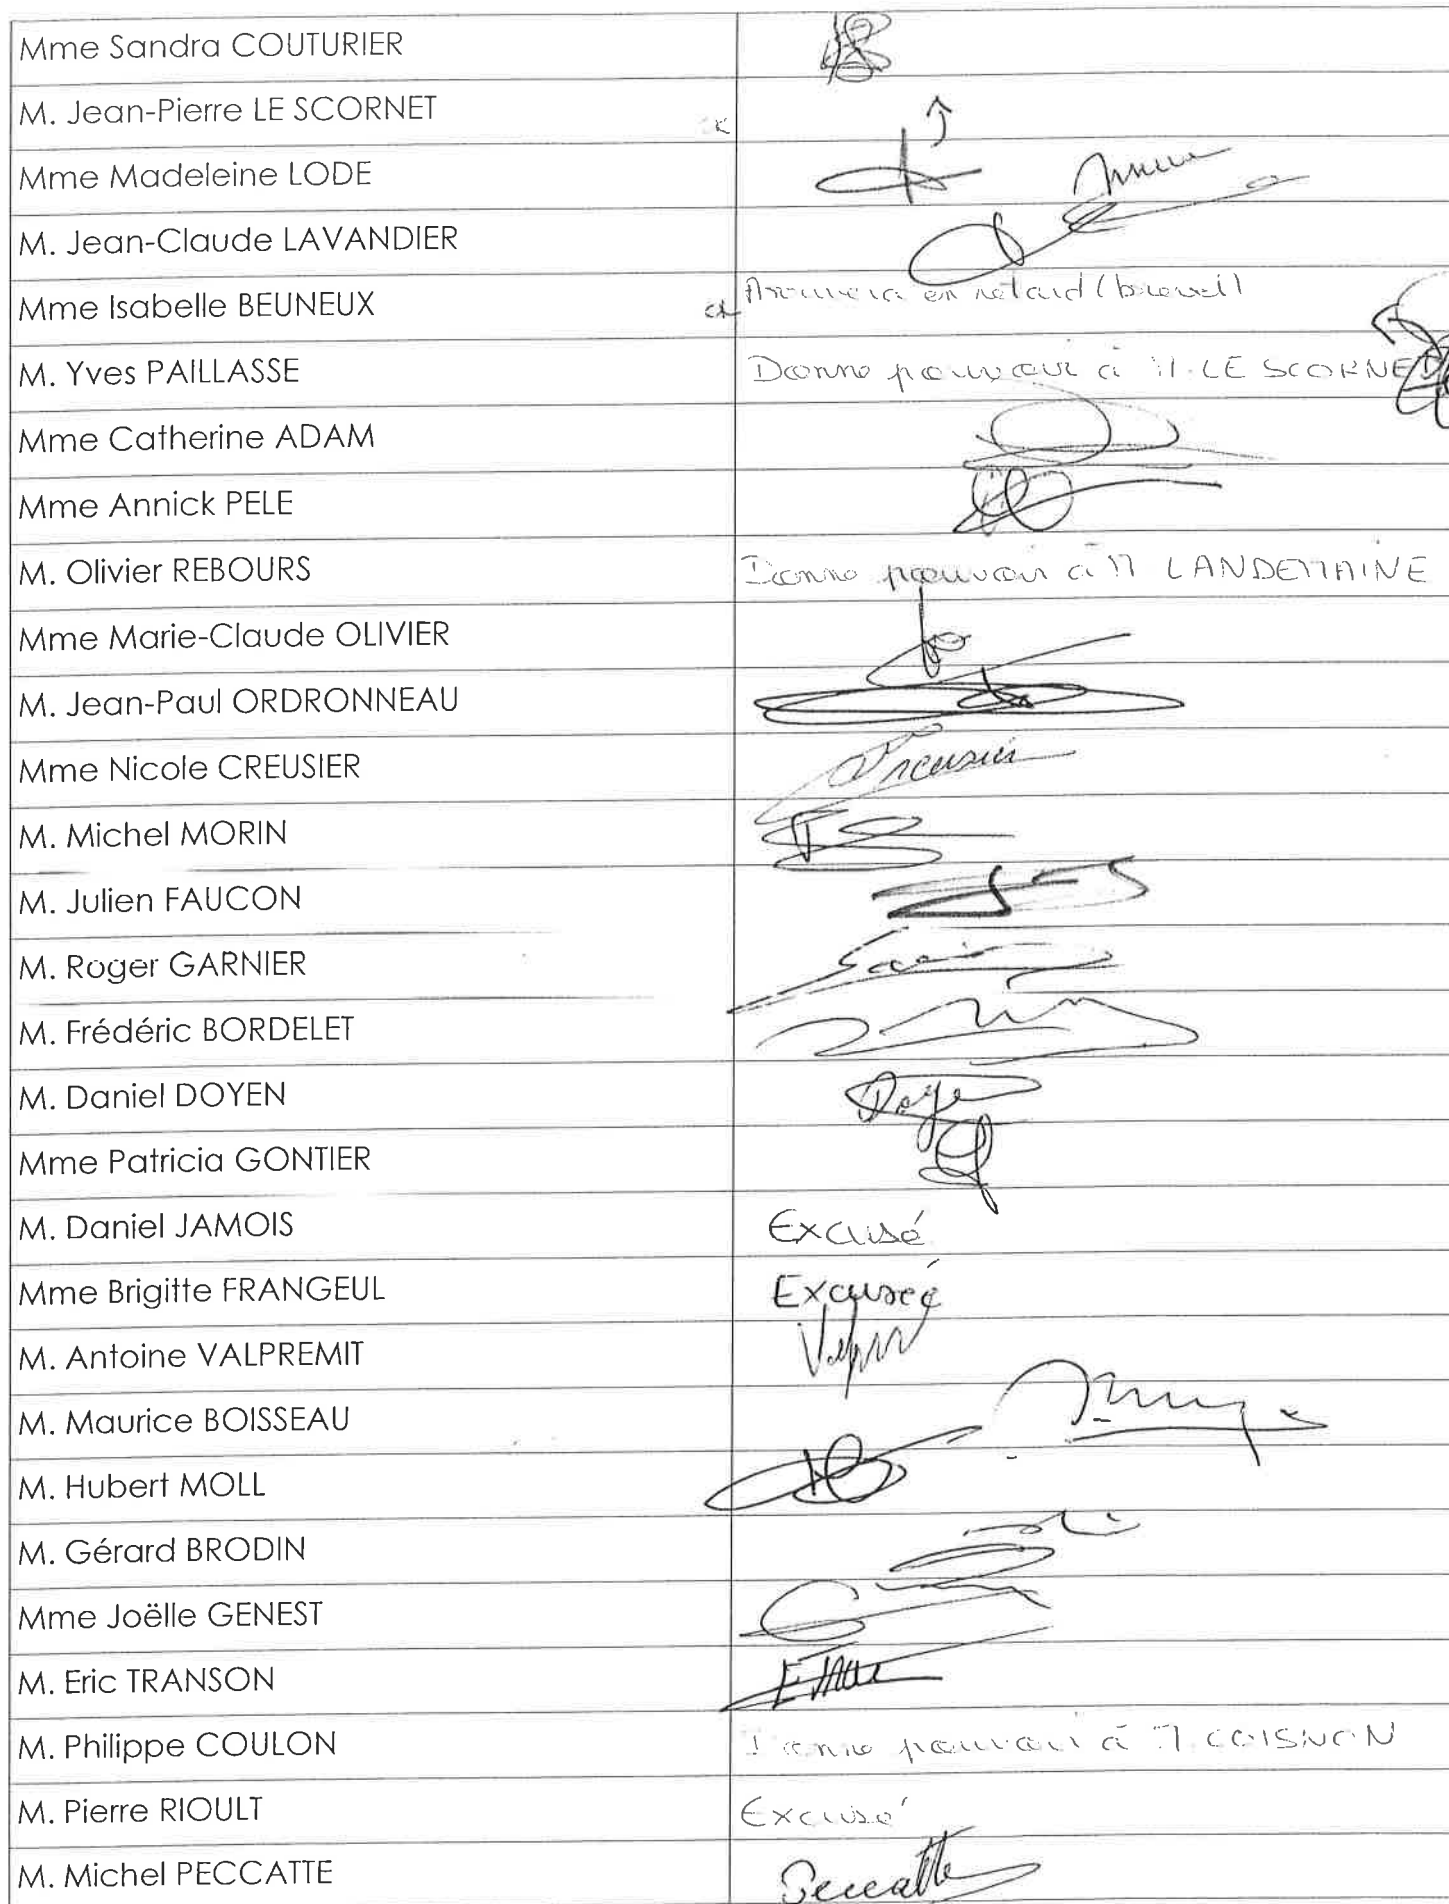 Mme Sandra COUTURIER
M. Jean-Pierre LE SCORNET
Mme Madeleine LODE
M. Jean-Claude LAVANDIER
Mme Isabelle BEUNEUX
Arrivera en retard (breuil)
M. Yves PAILLASSE
Donne pouvoir à M. LE SCORNET
Mme Catherine ADAM
Mme Annick PELE
M. Olivier REBOURS
Donne pouvoir à M LANDEMAINE
Mme Marie-Claude OLIVIER
M. Jean-Paul ORDRONNEAU
Mme Nicole CREUSIER
Creusier
M. Michel MORIN
M. Julien FAUCON
M. Roger GARNIER
M. Frédéric BORDELET
M. Daniel DOYEN
Doyen
Mme Patricia GONTIER
M. Daniel JAMOIS
Excusé
Mme Brigitte FRANGEUL
Excusée
M. Antoine VALPREMIT
M. Maurice BOISSEAU
M. Hubert MOLL
M. Gérard BRODIN
Mme Joëlle GENEST
M. Eric TRANSON
M. Philippe COULON
Donne pouvoir à M. COISNON
M. Pierre RIOULT
Excusé
M. Michel PECCATTE
Peccatte